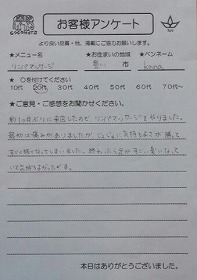 お客様アンケート
より良い品質・他、掲載にご協力お願い致します。
★メニュー名 ★お住まいの地域 ★ペンネーム
リンパマッサージ 市 kana
★ ○を付けてください
10代 20代 30代 40代 50代 60代 70代~
★ご意見・ご感想をお聞かせください。
約1ヶ月ぶりに来店したので、リンパマッサージをやりました。
最初は痛みがありましたが、だんだんと気持ちよさが勝って
しまいました。終わったら足がすごい軽くなって
いて気持ちよかったです。
本日はありがとうございました。